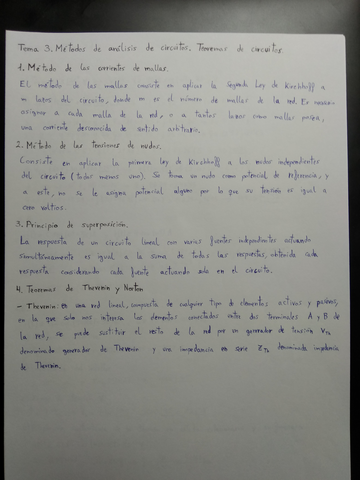 Tema 3. Métodos de análisis de circuitos. Teoremas de circuitos.
1. Método de las corrientes de mallas.
El método de las mallas consiste en aplicar la segunda Ley de Kirchhoff a
m lazos del circuito, donde m es el número de mallas de la red. Es necesario
asignar a cada malla de la red, o a tantos lazos como mallas posea,
una corriente desconocida de sentido arbitrario.
2. Método de las tensiones de nudos.
Consiste en aplicar la primera Ley de Kirchhoff a los nudos independientes
del circuito (todos menos uno). Se toma un nudo como potencial de referencia, y
a este, no se le asigna potencial alguno por lo que su tensión es igual a
cero voltios.
3. Principio de superposición.
La respuesta de un circuito lineal con varias fuentes independientes actuando
simultáneamente es igual a la suma de todas las respuestas, obtenida cada
respuesta considerando cada fuente actuando sola en el circuito.
4. Teoremas de Thevenin y Norton
- Thevenin: en una red lineal, compuesta de cualquier tipo de elementos activos y pasivos,
en la que solo nos interesa los elementos conectados entre dos terminales A y B de
la red, se puede sustituir el resto de la red por un generador de tensión VTh
denominado generador de Thevenin y una impedancia en serie ZTh denominada impedancia
de Thevenin.